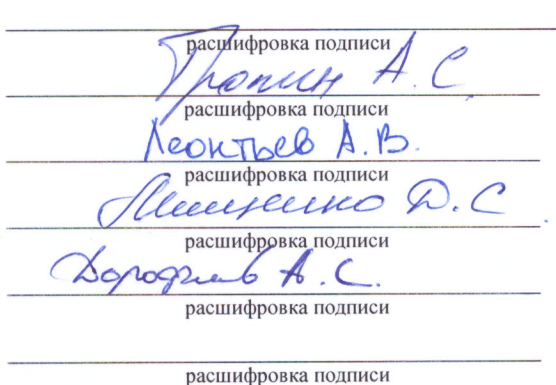 расшифровка подписи
Тропин А.С.
расшифровка подписи
Леонтьев А.В.
расшифровка подписи
Мищенко Д.С.
расшифровка подписи
А.С.
расшифровка подписи
расшифровка подписи